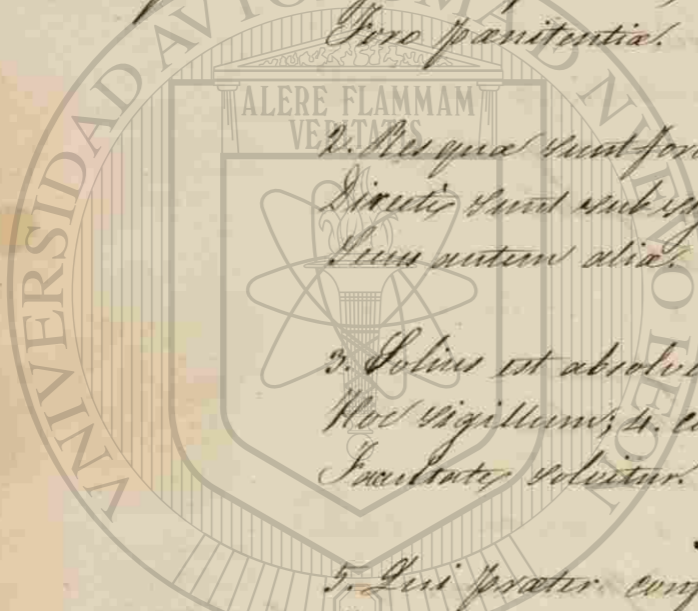 Foro pænitentiæ.
2. Res quæ sunt for
Directe sunt sub
Secus autem aliæ.
3. Solius est absolv
Hoc sigillum; 4.
Facultate solvitur.
5. Qui præter
UNIVERSIDAD AUTONOMA DE NUEVO LEON
ALERE FLAMMAM
VERITATIS